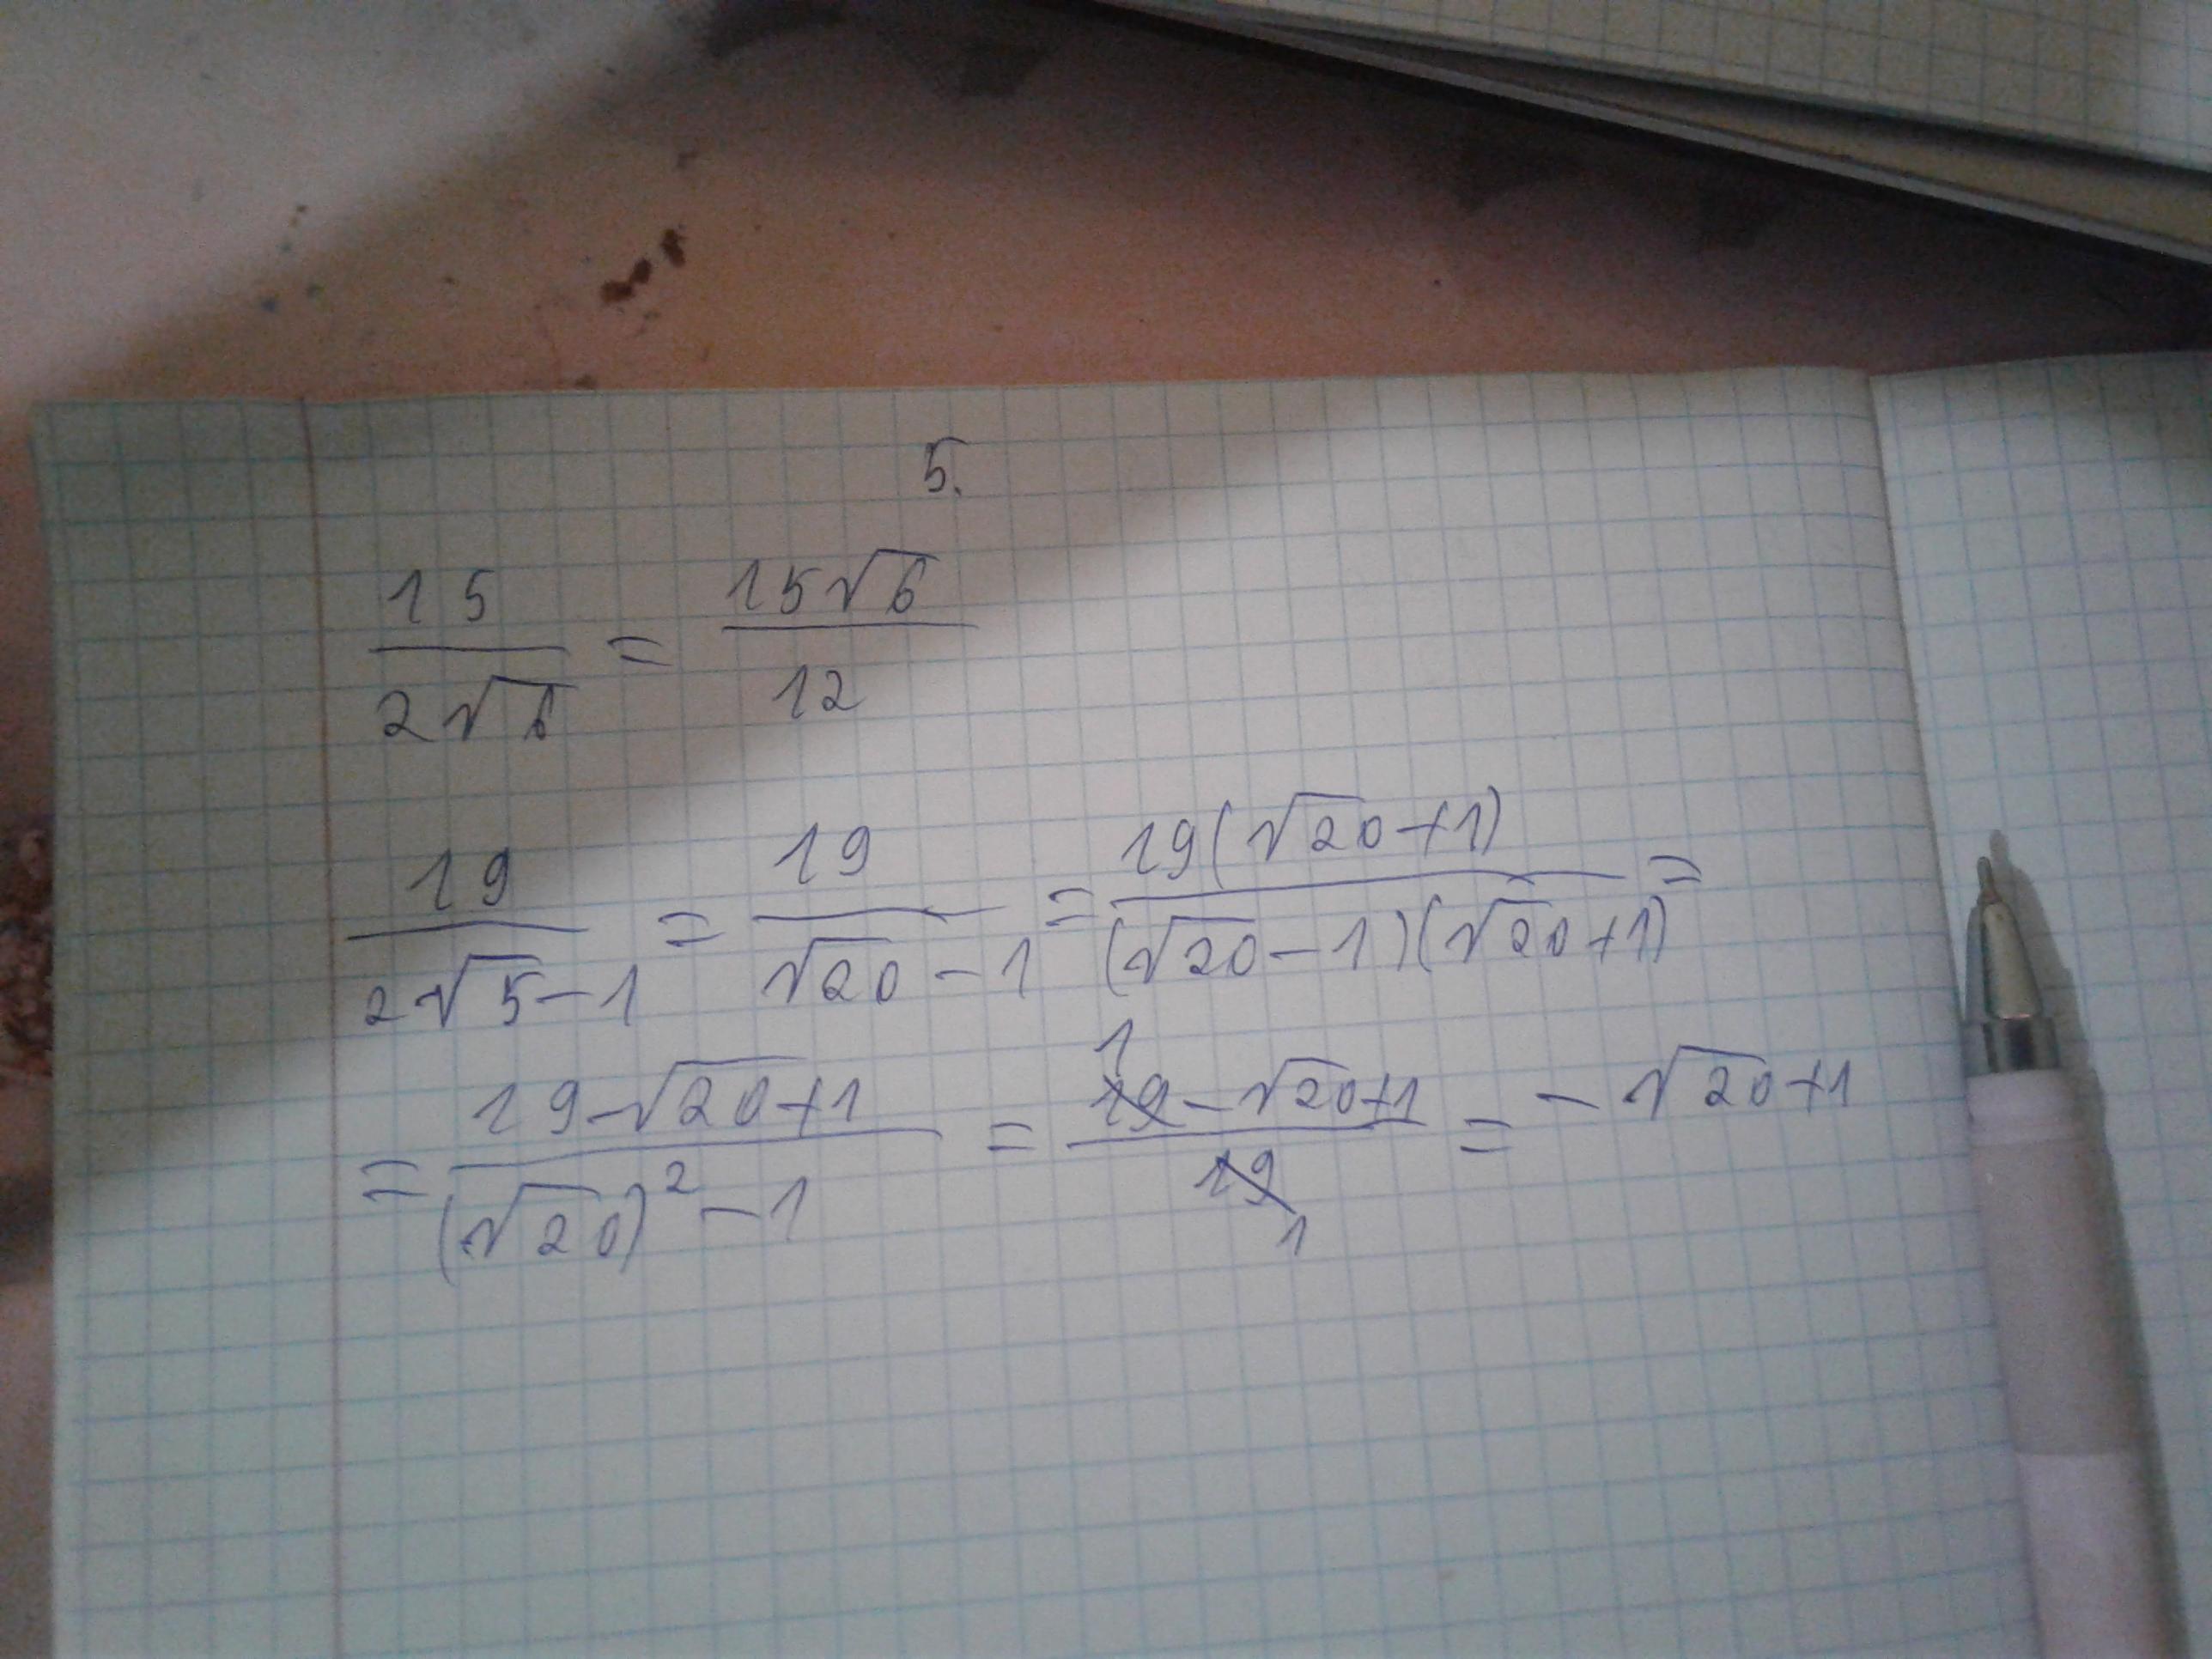 5.
15/(2√6) = 15√6/12
19/(2√5-1) = 19/(√20-1) = 19(√20+1)/((√20-1)(√20+1)) =
= (19-√20+1)/((√20)²-1) = (19-√20+1)/19 = -√20+1
1
1